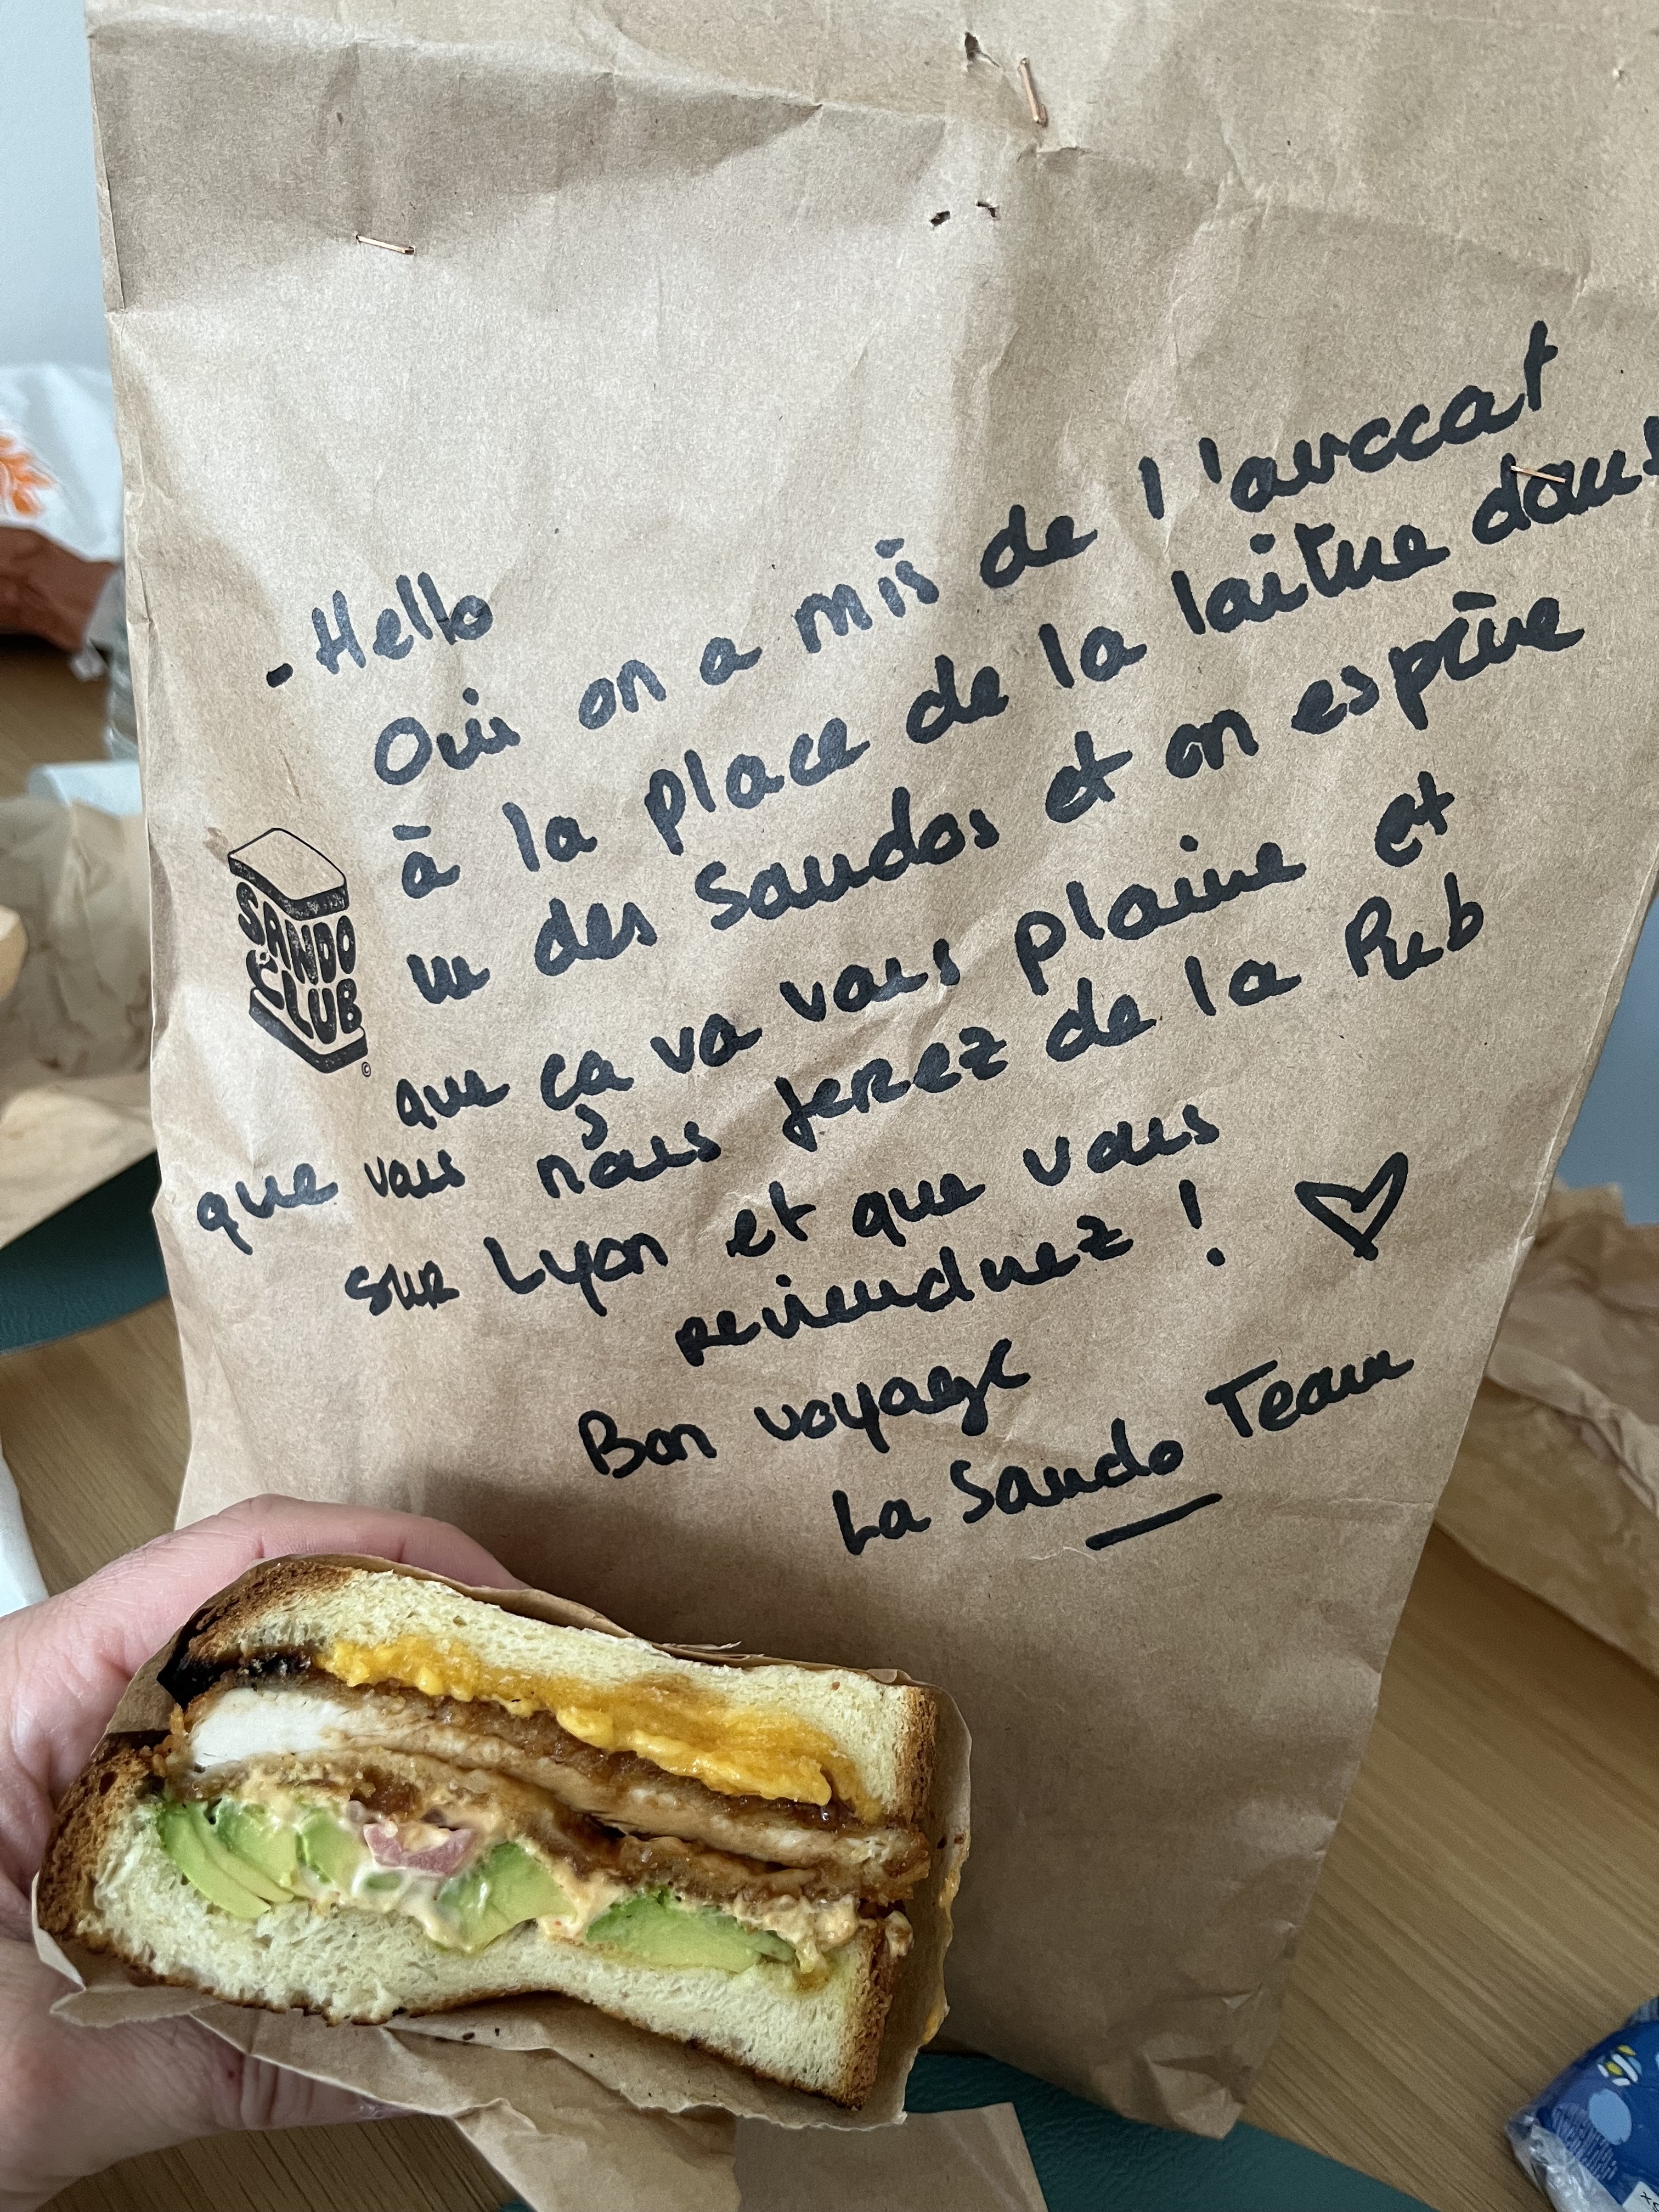 - Hello
Oui on a mis de l'avocat
à la place de la laitue dans
un des Sandos et on espère
que ça va vous plaire et
que vous nous ferez de la Pub
sur Lyon et que vous
reviendrez ! ♡
Bon voyage
La Sando Team
SANDO
CLUB
©